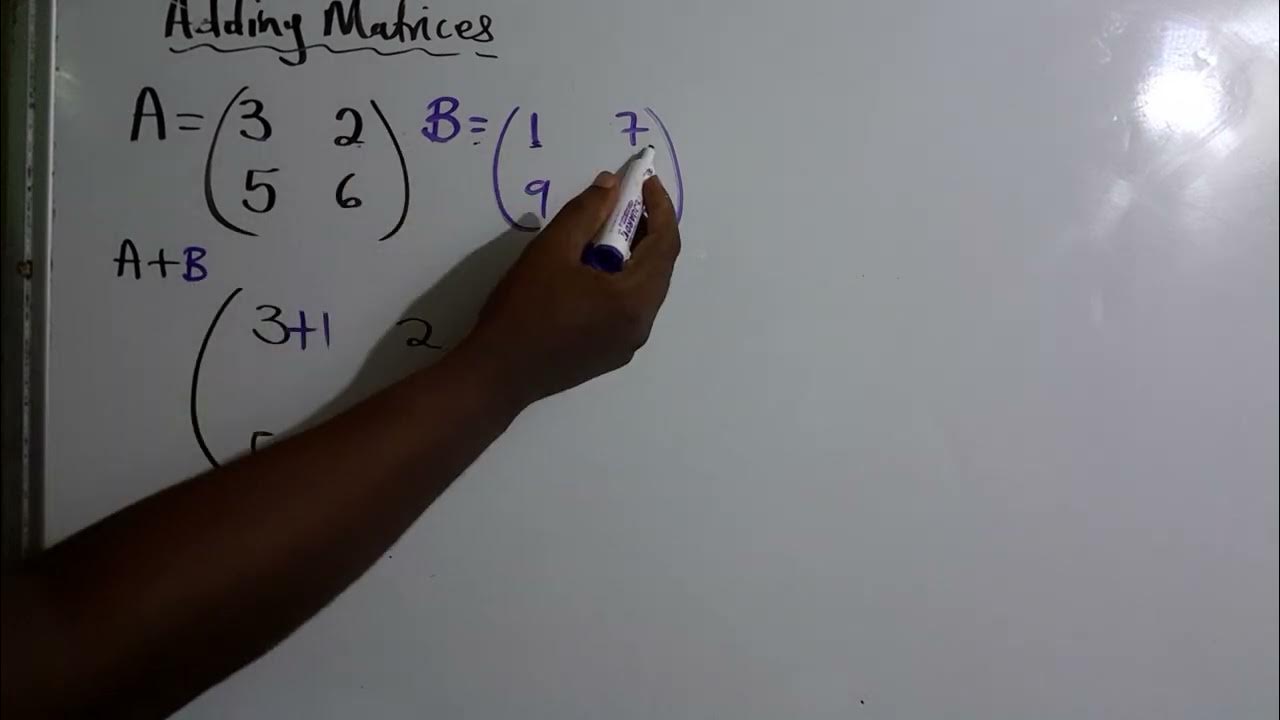 Adding Matrices
A = (3 2 B = (1 7
5 6) 9 )
A+B
(3+1 2
5